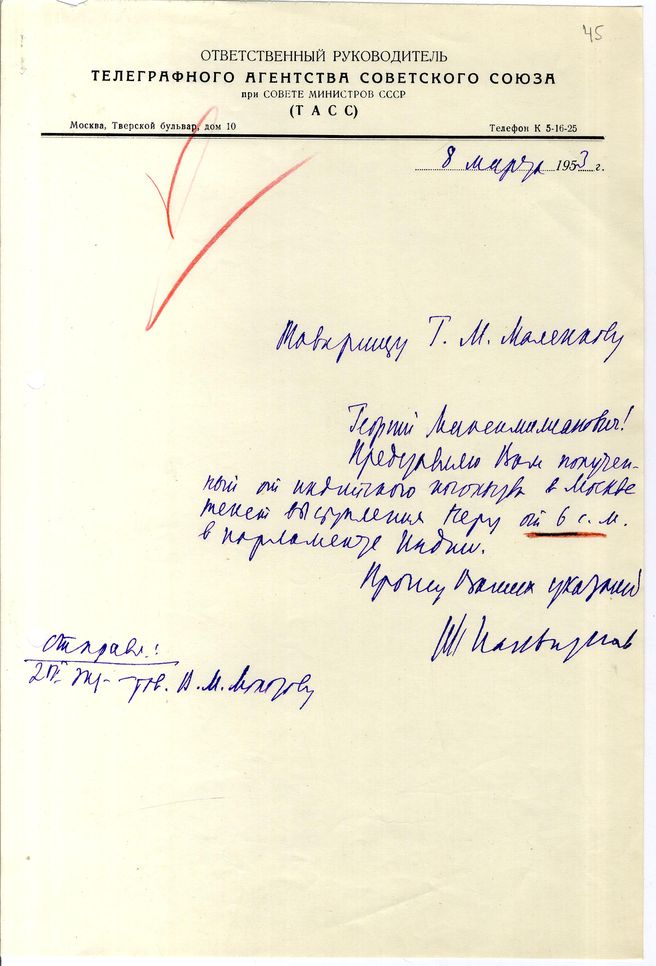 45
ОТВЕТСТВЕННЫЙ РУКОВОДИТЕЛЬ
ТЕЛЕГРАФНОГО АГЕНТСТВА СОВЕТСКОГО СОЮЗА
при СОВЕТЕ МИНИСТРОВ СССР
(ТАСС)
Москва, Тверской бульвар, дом 10 Телефон К 5-16-25
8 марта 1953 г.
Товарищу Г. М. Маленкову
Георгий Максимилианович!
Представляю Вам получен-
ный от индийского посольства в Москве
текст выступления Неру от 6 с. м.
в парламенте Индии.
Прошу Ваших указаний
Отправл:
2й экз - тов. В. М. Молотову